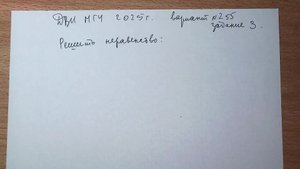 ДВИ МГУ 2025 г. вариант №255
задание 3.
Решить неравенство: